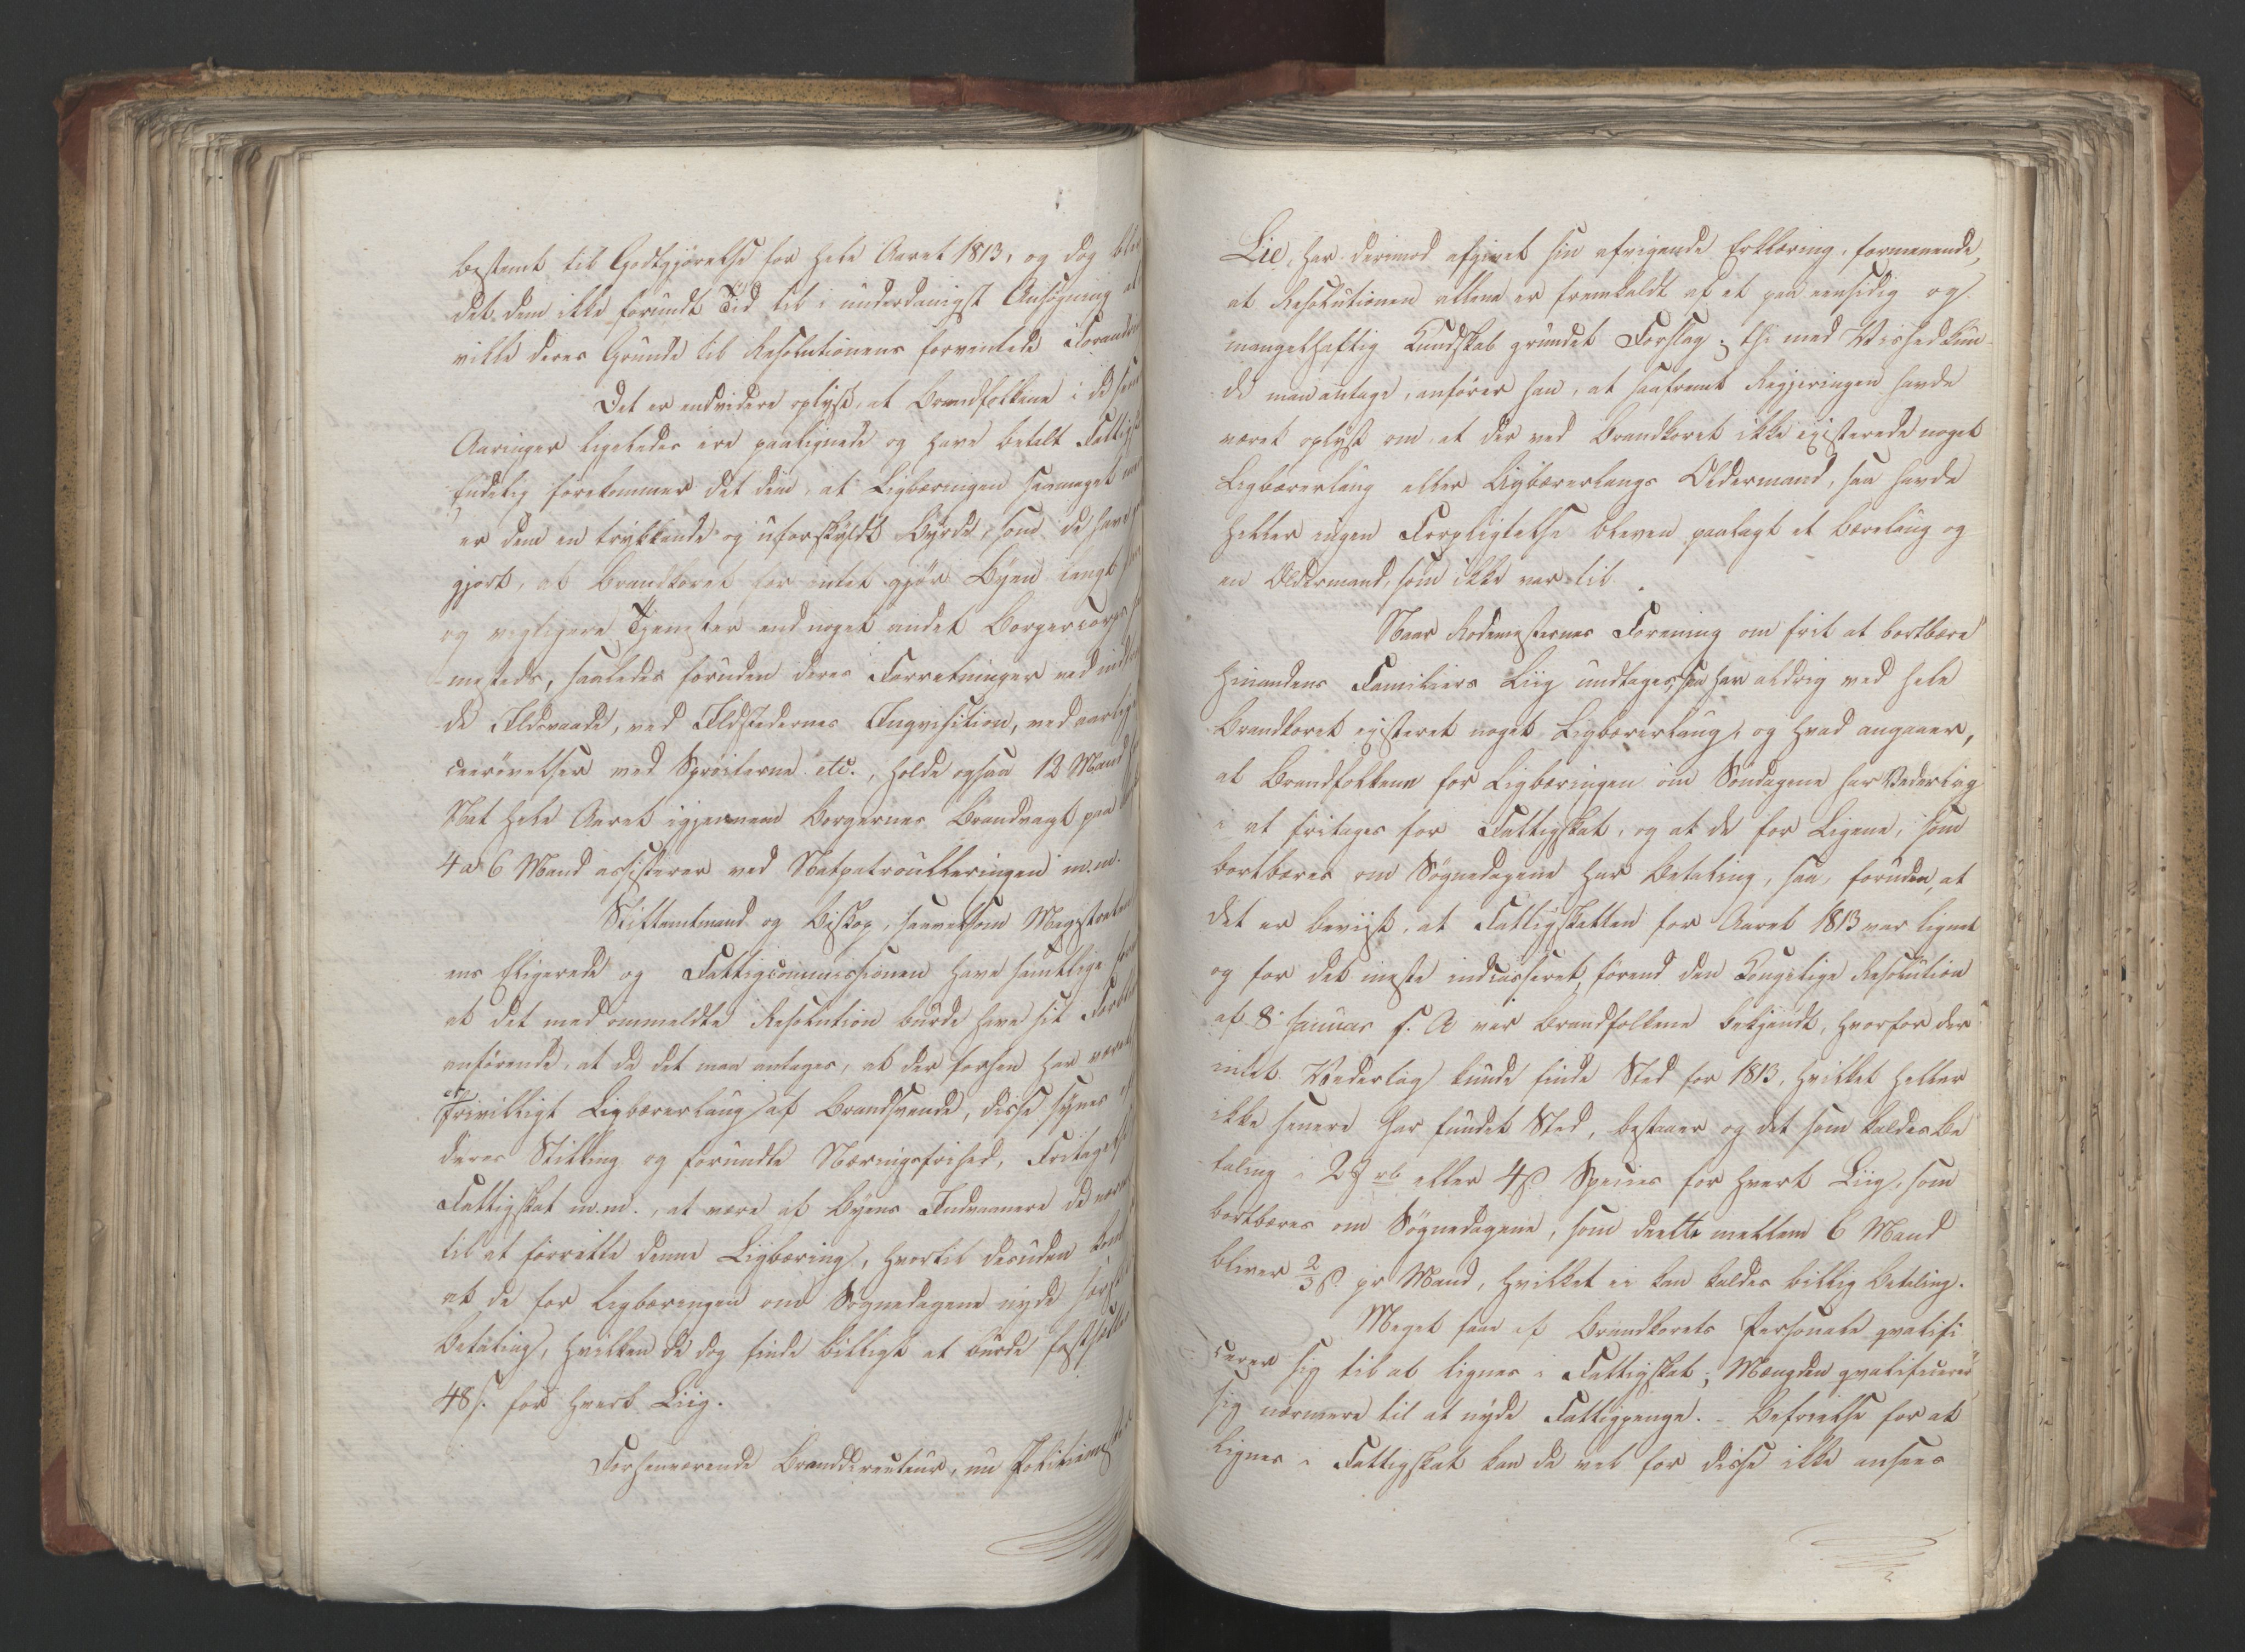 bestemt til Godtgjørelse for hele Aaret 1813, og dog blev
det dem ikke forundt Tid til i underdanigst Ansøgning at
vikle deres Grunde til Resolutionens forventede Forand
Det er endvidere oplyst, at Brandfolkene i de sen
Aaringer ligeledes ere paalignede og have betalt Fattigsk
Endelig forekommer det dem, at Ligbæringen saameget
er dem en trykkende og uforskyldt Byrde, som de have
gjort, at Brandkoret for intet gjør Byen langt
og vigtigere Tjenester end noget andet Borgercorps
mesteds, saaledes foruden deres Forretninger ved indtr
de Ildsvaade, ved Ildstedernes Inqvisition, ved aarlige
ceerövelser ved Sprøiterne etc., holde ogsaa 12 Mand
Nat hele Aaret igjennem Borgernes Brandvagt paa
4 a 6 Mand assisterer ved Natpatroulleringen m.m.
Stiftamtmand og Biskop, saavelsom Magistraten
ens Eligerede og Fattigcommissionen have samtlige
at det med ommeldte Resolution burde have sit Forbl
anførende, at da det maa antages, at der forhen har været
et frivilligt Ligbærerlaug af Brandsvende, disse synes
deres Stilling og forundte Næringsfrihed, Fritagelse
Fattigskat m.m., at være af Byens Indvaanere de nærm
til at forrette denne Ligbæring, hvortil desuden kom
at de for Ligbæringen om Søgnedagene nyde
Betaling, hvilken de dog finde billigt at burde fastsætte
48 s. for hvert Liig.
Forhenværende Branddirecteur, nu Politie
Lie, har derimod afgivet sin afvigende Erklæring, formenende,
at Resolutionen allene er fremkaldt af et paa eensidig og
mangelhaftig Kundskab grundet Forslag; thi med Vished kun-
de man antage, anfører han, at saafremt Regjeringen havde
været oplyst om, at der ved Brandkoret ikke existerede noget
Ligbærerlaug eller Ligbærerlaugs Oldermand, saa havde
heller ingen Forpligtelse bleven paalagt et Bærelaug og
en Oldermand, som ikke var til.
Naar Rodemesternes Forening om frit at bortbære
hinandens Familiers Liig undtages, saa har aldrig ved hele
Brandkoret existeret noget Ligbærerlaug, og hvad angaaer,
at Brandfolkene for Ligbæringen om Søndagene har Vederlag
i at fritages for Fattigskat, og at de for Ligene, som
bortbæres om Søgnedagene har Betaling, saa, foruden, at
det er beviist, at Fattigskatten for Aaret 1813 var lignet
og for det meste indcasseret, førend den Kongelige Resolution
af 8 Januar s. A var Brandfolkene bekjendt, hvorfor der
intet Vederlag kunde finde Sted for 1813, hvilket heller
ikke senere har fundet Sted, bestaaer og det som kaldes Be
taling i 2 rb eller 4 ß Species for hvert Liig, som
bortbæres om Søgnedagene, som deelte mellem 6 Mand
bliver 2/3 ß pr Mand, hvilket ei kan kaldes billig Betaling.
Meget faae af Brandkorets Personale qvalifi
cerer sig til at lignes i Fattigskat; Mængden qvalificerer
sig nærmere til at nyde Fattigpenge. - Befrielse for at
lignes i Fattigskat kan da vel for disse ikke ansees